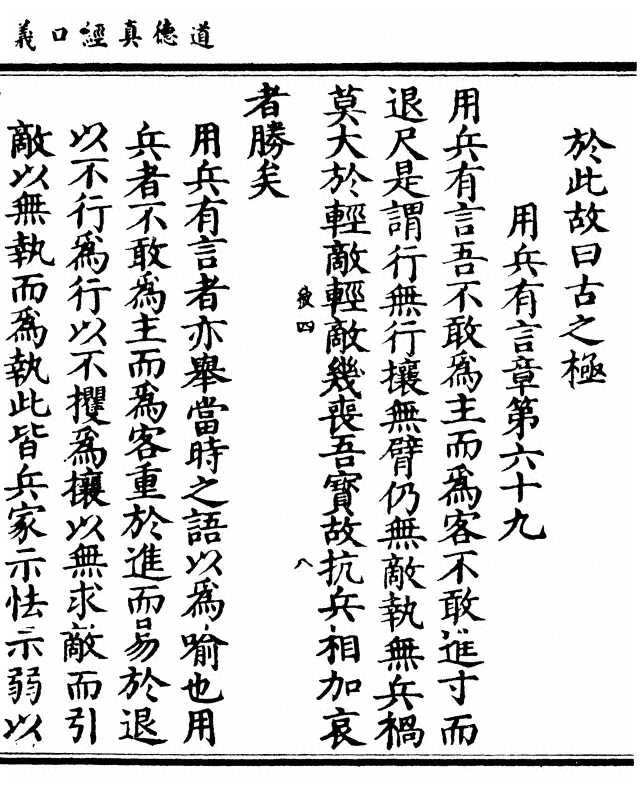 道德真經口義
於此故曰古之極
用兵有言章第六十九
用兵有言吾不敢爲主而爲客不敢進寸而
退尺是謂行無行攘無臂仍無敵執無兵禍
莫大於輕敵輕敵幾喪吾寳故抗兵相加哀
彼四
八
者勝矣
用兵有言者亦舉當時之語以爲喻也用
兵者不敢爲主而爲客重於進而易於退
以不行爲行以不攫爲攘以無求敵而引
敵以無執而爲執此皆兵家示怯示弱以